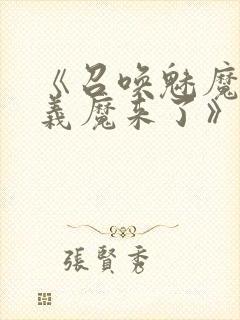 《召唤魅魔
義魔来了》
張賢秀